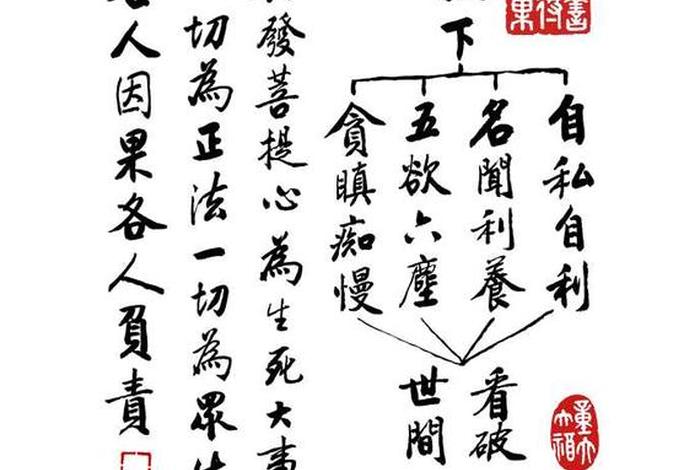 下
自私自利
名聞利養
五欲六塵
貪瞋痴慢
看破
世間
發菩提心為生死大事
切為正法一切為眾
人因果各人負責